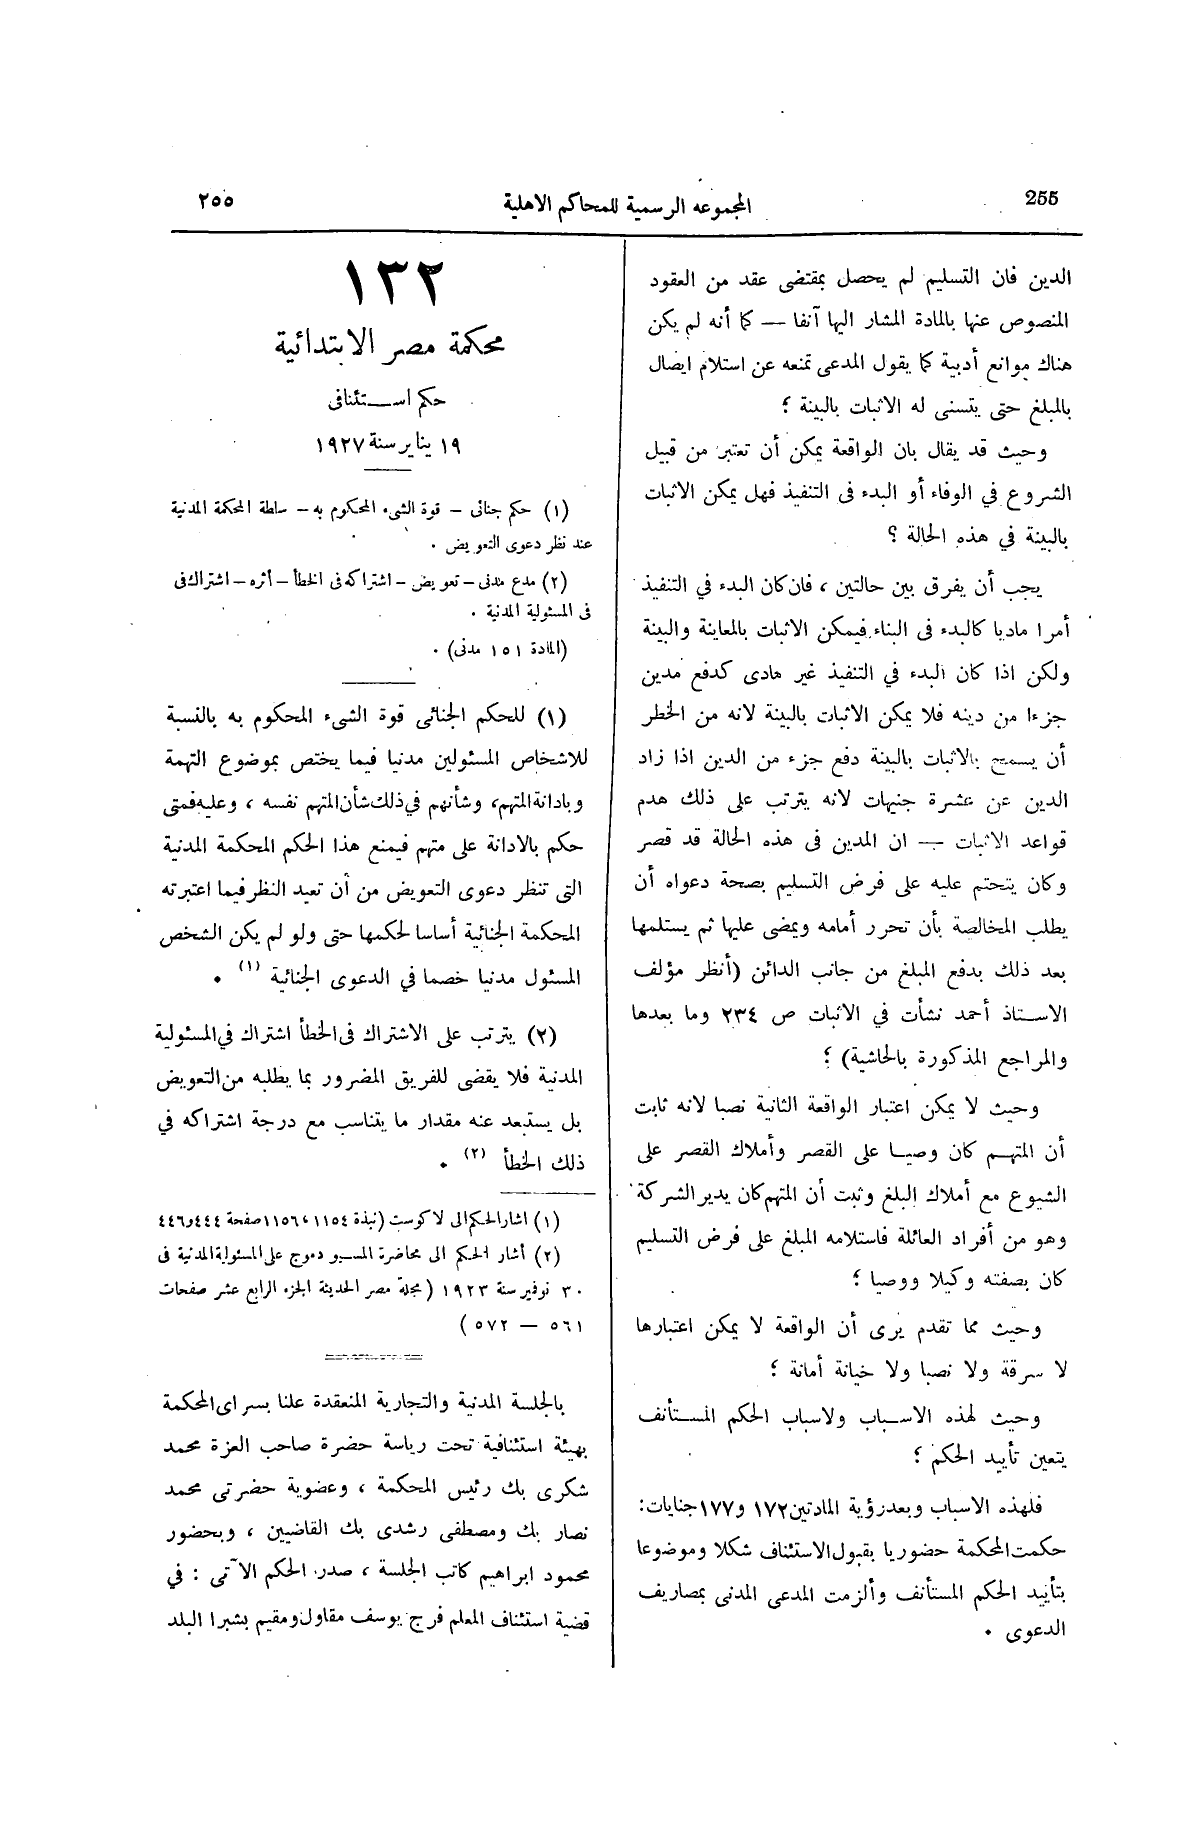 255
المجموعه الرسمية للمحاكم الاهلية
٢٥٥
الدين فان التسليم لم يحصل بمقتضى عقد من العقود
المنصوص عنها بالمادة المشار اليها آنفا — كما أنه لم يكن
هناك موانع أدبية كما يقول المدعى تمنعه عن استلام ايصال
بالمبلغ حتى يتسنى له الاثبات بالبينة ؛
وحيث قد يقال بان الواقعة يمكن أن تعتبر من قبيل
الشروع في الوفاء أو البدء فى التنفيذ فهل يمكن الاثبات
بالبينة في هذه الحالة ؟
يجب أن يفرق بين حالتين ، فان كان البدء في التنفيذ
أمرا ماديا كالبدء فى البناء فيمكن الاثبات بالمعاينة والبينة
ولكن اذا كان البدء في التنفيذ غير مادى كدفع مدين
جزءا من دينه فلا يمكن الاثبات بالبينة لانه من الخطر
أن يسمح بالاثبات بالبينة دفع جزء من الدين اذا زاد
الدين عن عشرة جنيهات لانه يترتب على ذلك هدم
قواعد الاثبات — ان المدين فى هذه الحالة قد قصر
وكان يتحتم عليه على فرض التسليم بصحة دعواه أن
يطلب المخالصة بأن تحرر أمامه ويمضى عليها ثم يستلمها
بعد ذلك بدفع المبلغ من جانب الدائن (أنظر مؤلف
الاستاذ أحمد نشأت في الاثبات ص ٢٣٤ وما بعدها
والمراجع المذكورة بالحاشية) ؛
وحيث لا يمكن اعتبار الواقعة الثانية نصبا لانه ثابت
أن المتهم كان وصيا على القصر وأملاك القصر على
الشيوع مع أملاك البلغ وثبت أن المتهم كان يدير الشركة
وهو من أفراد العائلة فاستلامه المبلغ على فرض التسليم
كان بصفته وكيلا ووصيا ؛
وحيث مما تقدم يرى أن الواقعة لا يمكن اعتبارها
لا سرقة ولا نصبا ولا خيانة أمانة ؛
وحيث لهذه الاسباب ولاسباب الحكم المستأنف
يتعين تأييد الحكم ؛
فلهذه الاسباب وبعد رؤية المادتين ١٧٢ و١٧٧ جنايات :
حكمت المحكمة حضوريا بقبول الاستئناف شكلا وموضوعا
بتأييد الحكم المستأنف وألزمت المدعى المدنى بمصاريف
الدعوى .
١٣٢
محكمة مصر الابتدائية
حكم استئنافى
١٩ يناير سنة ١٩٢٧
(١) حكم جنائى – قوة الشىء المحكوم به – سلطة المحكمة المدنية
عند نظر دعوى التعويض .
(٢) مدع مدنى – تعويض – اشتراكه فى الخطأ – أثره – اشتراك فى
فى المسئولية المدنية .
(المادة ١٥١ مدنى) .
(١) للحكم الجنائى قوة الشىء المحكوم به بالنسبة
للاشخاص المسئولين مدنيا فيما يختص بموضوع التهمة
وبادانة المتهم، وشأنهم في ذلك شأن المتهم نفسه ، وعليه فمتى
حكم بالادانة على متهم فيمنع هذا الحكم المحكمة المدنية
التى تنظر دعوى التعويض من أن تعيد النظر فيما اعتبرته
المحكمة الجنائية أساسا لحكمها حتى ولو لم يكن الشخص
المسئول مدنيا خصما في الدعوى الجنائية (١) .
(٢) يترتب على الاشتراك فى الخطأ اشتراك في المسئولية
المدنية فلا يقضى للفريق المضرور بما يطلبه من التعويض
بل يستبعد عنه مقدار ما يتناسب مع درجة اشتراكه في
ذلك الخطأ (٢) .
(١) اشار الحكم الى لاكوست (نبذة ١١٥٤، ١١٥٦ صفحة ٤٤٤و٤٤٦
(٢) أشار الحكم الى محاضرة المسيو دموج على المسئولية المدنية فى
٣٠ نوفمبر سنة ١٩٢٣ (مجلة مصر الحديثة الجزء الرابع عشر صفحات
٥٦١ — ٥٧٢ )
بالجلسة المدنية والتجارية المنعقدة علنا بسراى المحكمة
بهيئة استئنافية تحت رياسة حضرة صاحب العزة محمد
شكرى بك رئيس المحكمة ، وعضوية حضرتى محمد
نصار بك ومصطفى رشدى بك القاضيين ، وبحضور
محمود ابراهيم كاتب الجلسة ، صدر الحكم الآتى : في
قضية استئناف المعلم فرج يوسف مقاول ومقيم بشبرا البلد